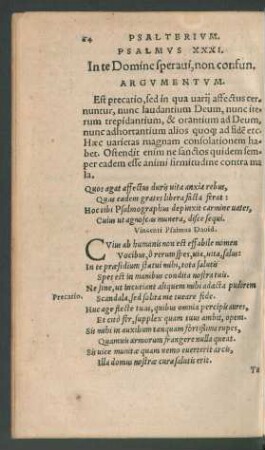 64 PSALTERIVM.
PSALMVS XXXI.
In te Domine speraui, non confun.
ARGVMENTVM.
Est precatio, sed in qua uarij affectus cer-
nuntur, nunc laudantium Deum, nunc ite-
rum trepidantium, & orantium ad Deum,
nunc adhortantium alios quoq; ad fidẽ etc.
Hæc uarietas magnam consolationem ha-
bet. Ostendit enim ne sanctos quidem sem-
per eadem esse animi firmitudine contra ma
la.
Quos agat affectus duris uita anxia rebus,
Quas eadem grates libera facta ferat:
Hoc tibi Psalmographus depinxit carmine uater,
Cuius ut agnoscas munera, disce sequi.
Vincenti Psalmus Dauid.
CVius ab humanis non est effabile nomen
Vocibus, ô rerum spes, uia, uita, salus:
In te præsidium statui mihi, tota salutis
Spes est in manibus condita nostra tuis.
Ne sine, ut incuriant aliquem mihi adacta pudorem
Precatio. Scandala, sed sobra me tueare fide.
Huc age flecte tuas, quibus omnia percipis aures,
Et citò fer, supplex quam tuus ambit, opem.
Sis mihi in auxilium tanquam fortissima rupes,
Quam uis armorum frangere nulla queat.
Sis uice munitæ quam nemo euerterit arcis,
Illa domus nostræ cura salutis erit.
Tu